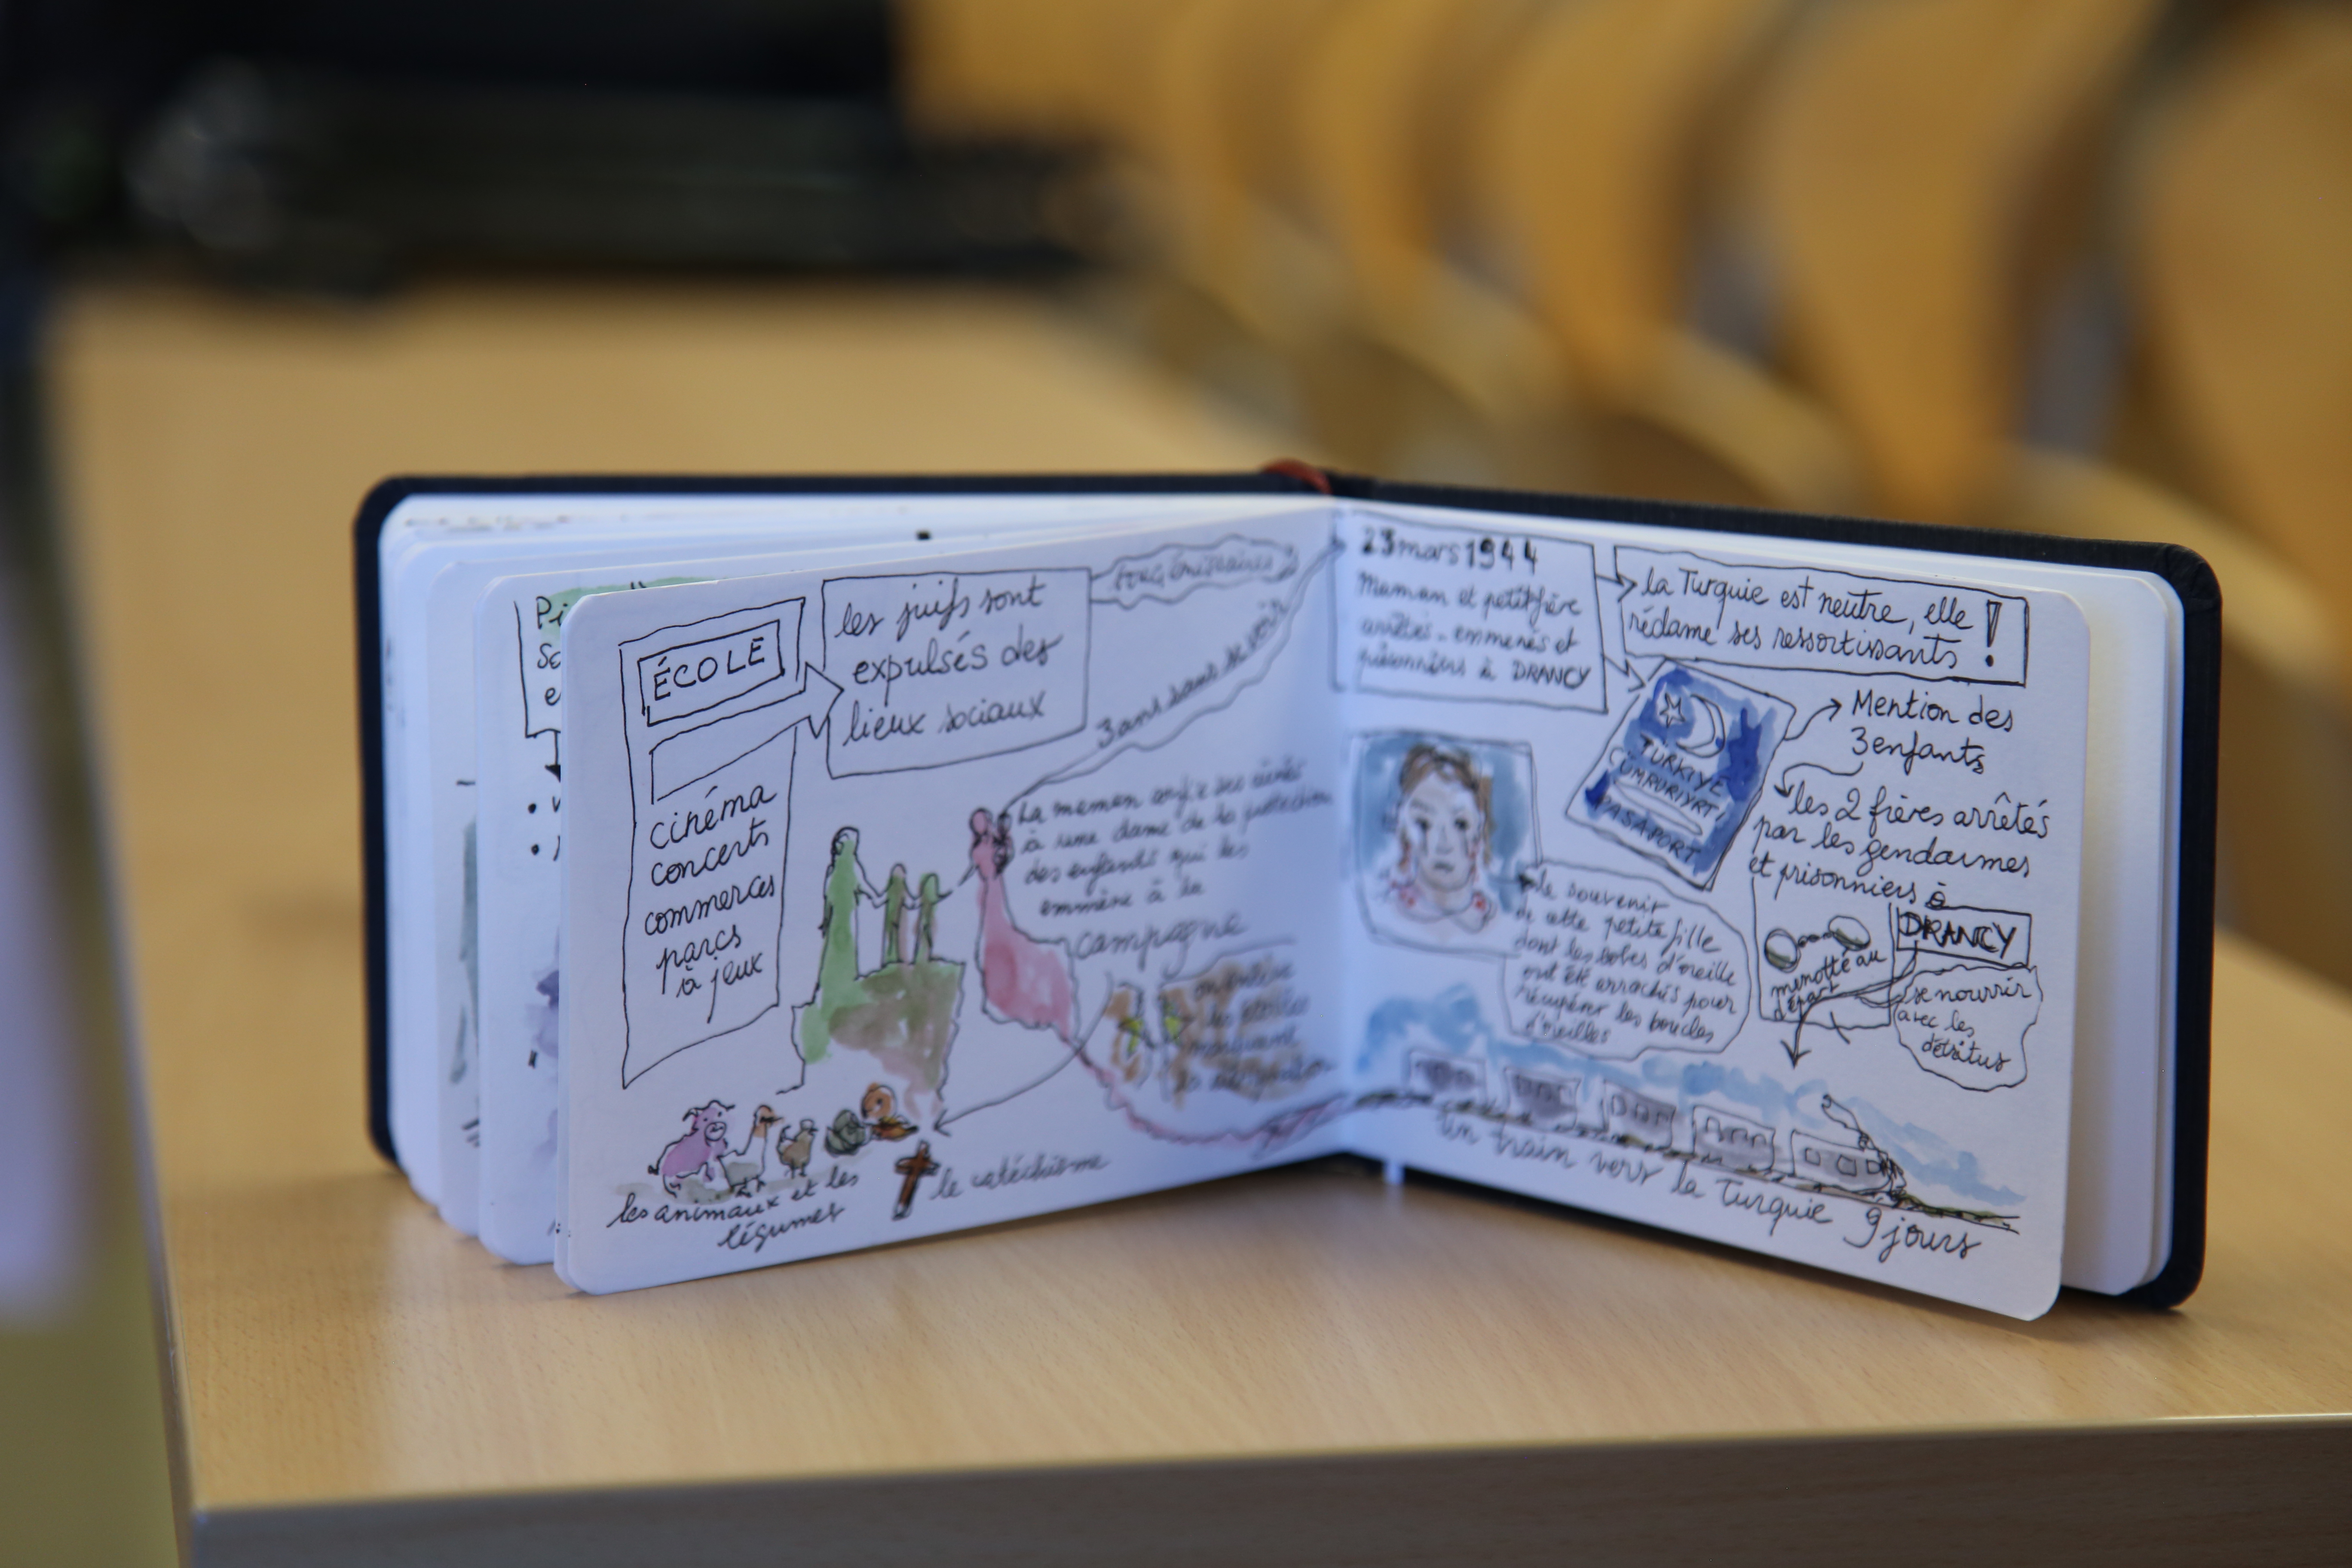 ÉCOLE
cinéma
concerts
commerces
parcs
à jeux
les juifs sont
expulsés des
lieux sociaux
3 ans sans se voir
La maman confie ses aînés
à une dame de la protection
des enfants qui les
emmène à la
campagne
les animaux et les
légumes
le catéchisme
Pi
Sc
e
23 mars 1944
Maman et petit frère
arrêtés - emmenés et
prisonniers à DRANCY
la Turquie est neutre, elle
réclame ses ressortissants !
TÜRKIYE
CUMRURIYRTI
PASAPORT
Mention des
3 enfants
les 2 frères arrêtés
par les gendarmes
et prisonniers à
DRANCY
menotté au
départ
se nourrir
avec les
détritus
le souvenir
de cette petite fille
dont les lobes d'oreille
ont été arrachés pour
récupérer les boucles
d'oreilles
Un train vers la Turquie 9 jours